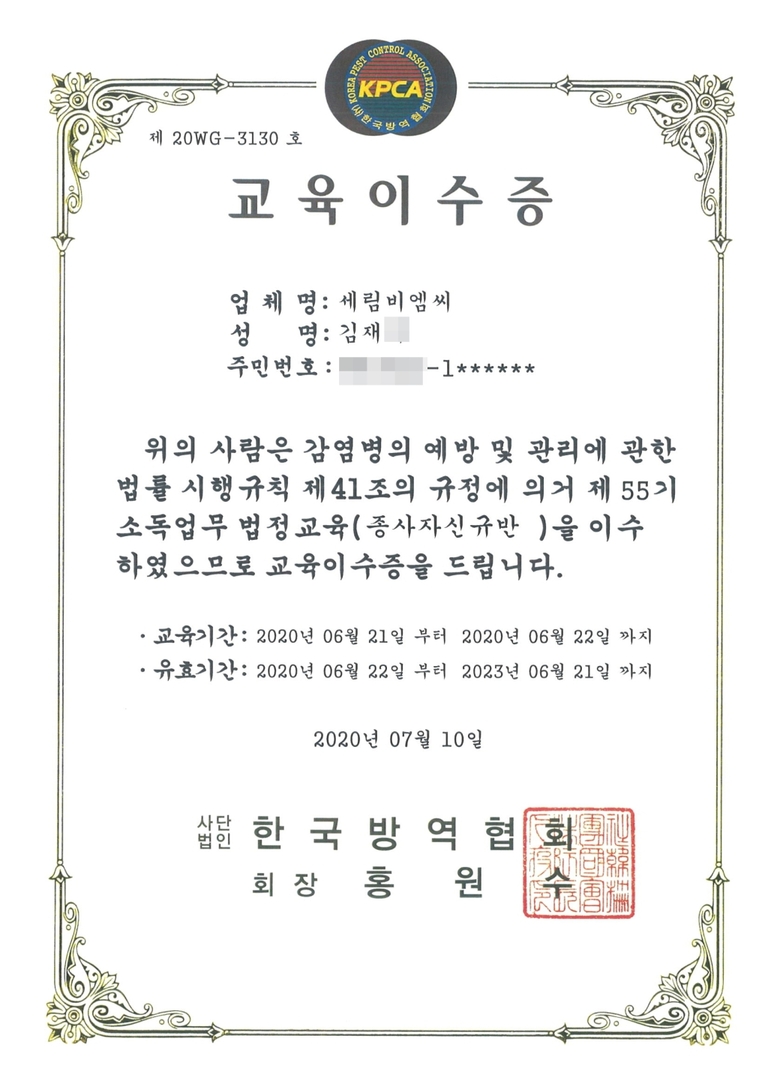 KOREA PEST CONTROL ASSOCIATION
KPCA
(사)한국방역협회
제 20WG-3130 호
교육이수증
업 체 명: 세림비엠씨
성 명: 김재
주민번호: -1******
위의 사람은 감염병의 예방 및 관리에 관한
법률 시행규칙 제41조의 규정에 의거 제 55기
소독업무 법정교육( 종사자신규반 )을 이수
하였으므로 교육이수증을 드립니다.
· 교육기간: 2020년 06월 21일 부터 2020년 06월 22일 까지
· 유효기간: 2020년 06월 22일 부터 2023년 06월 21일 까지
2020년 07월 10일
사단
법인 한국방역협회
회장 홍원수